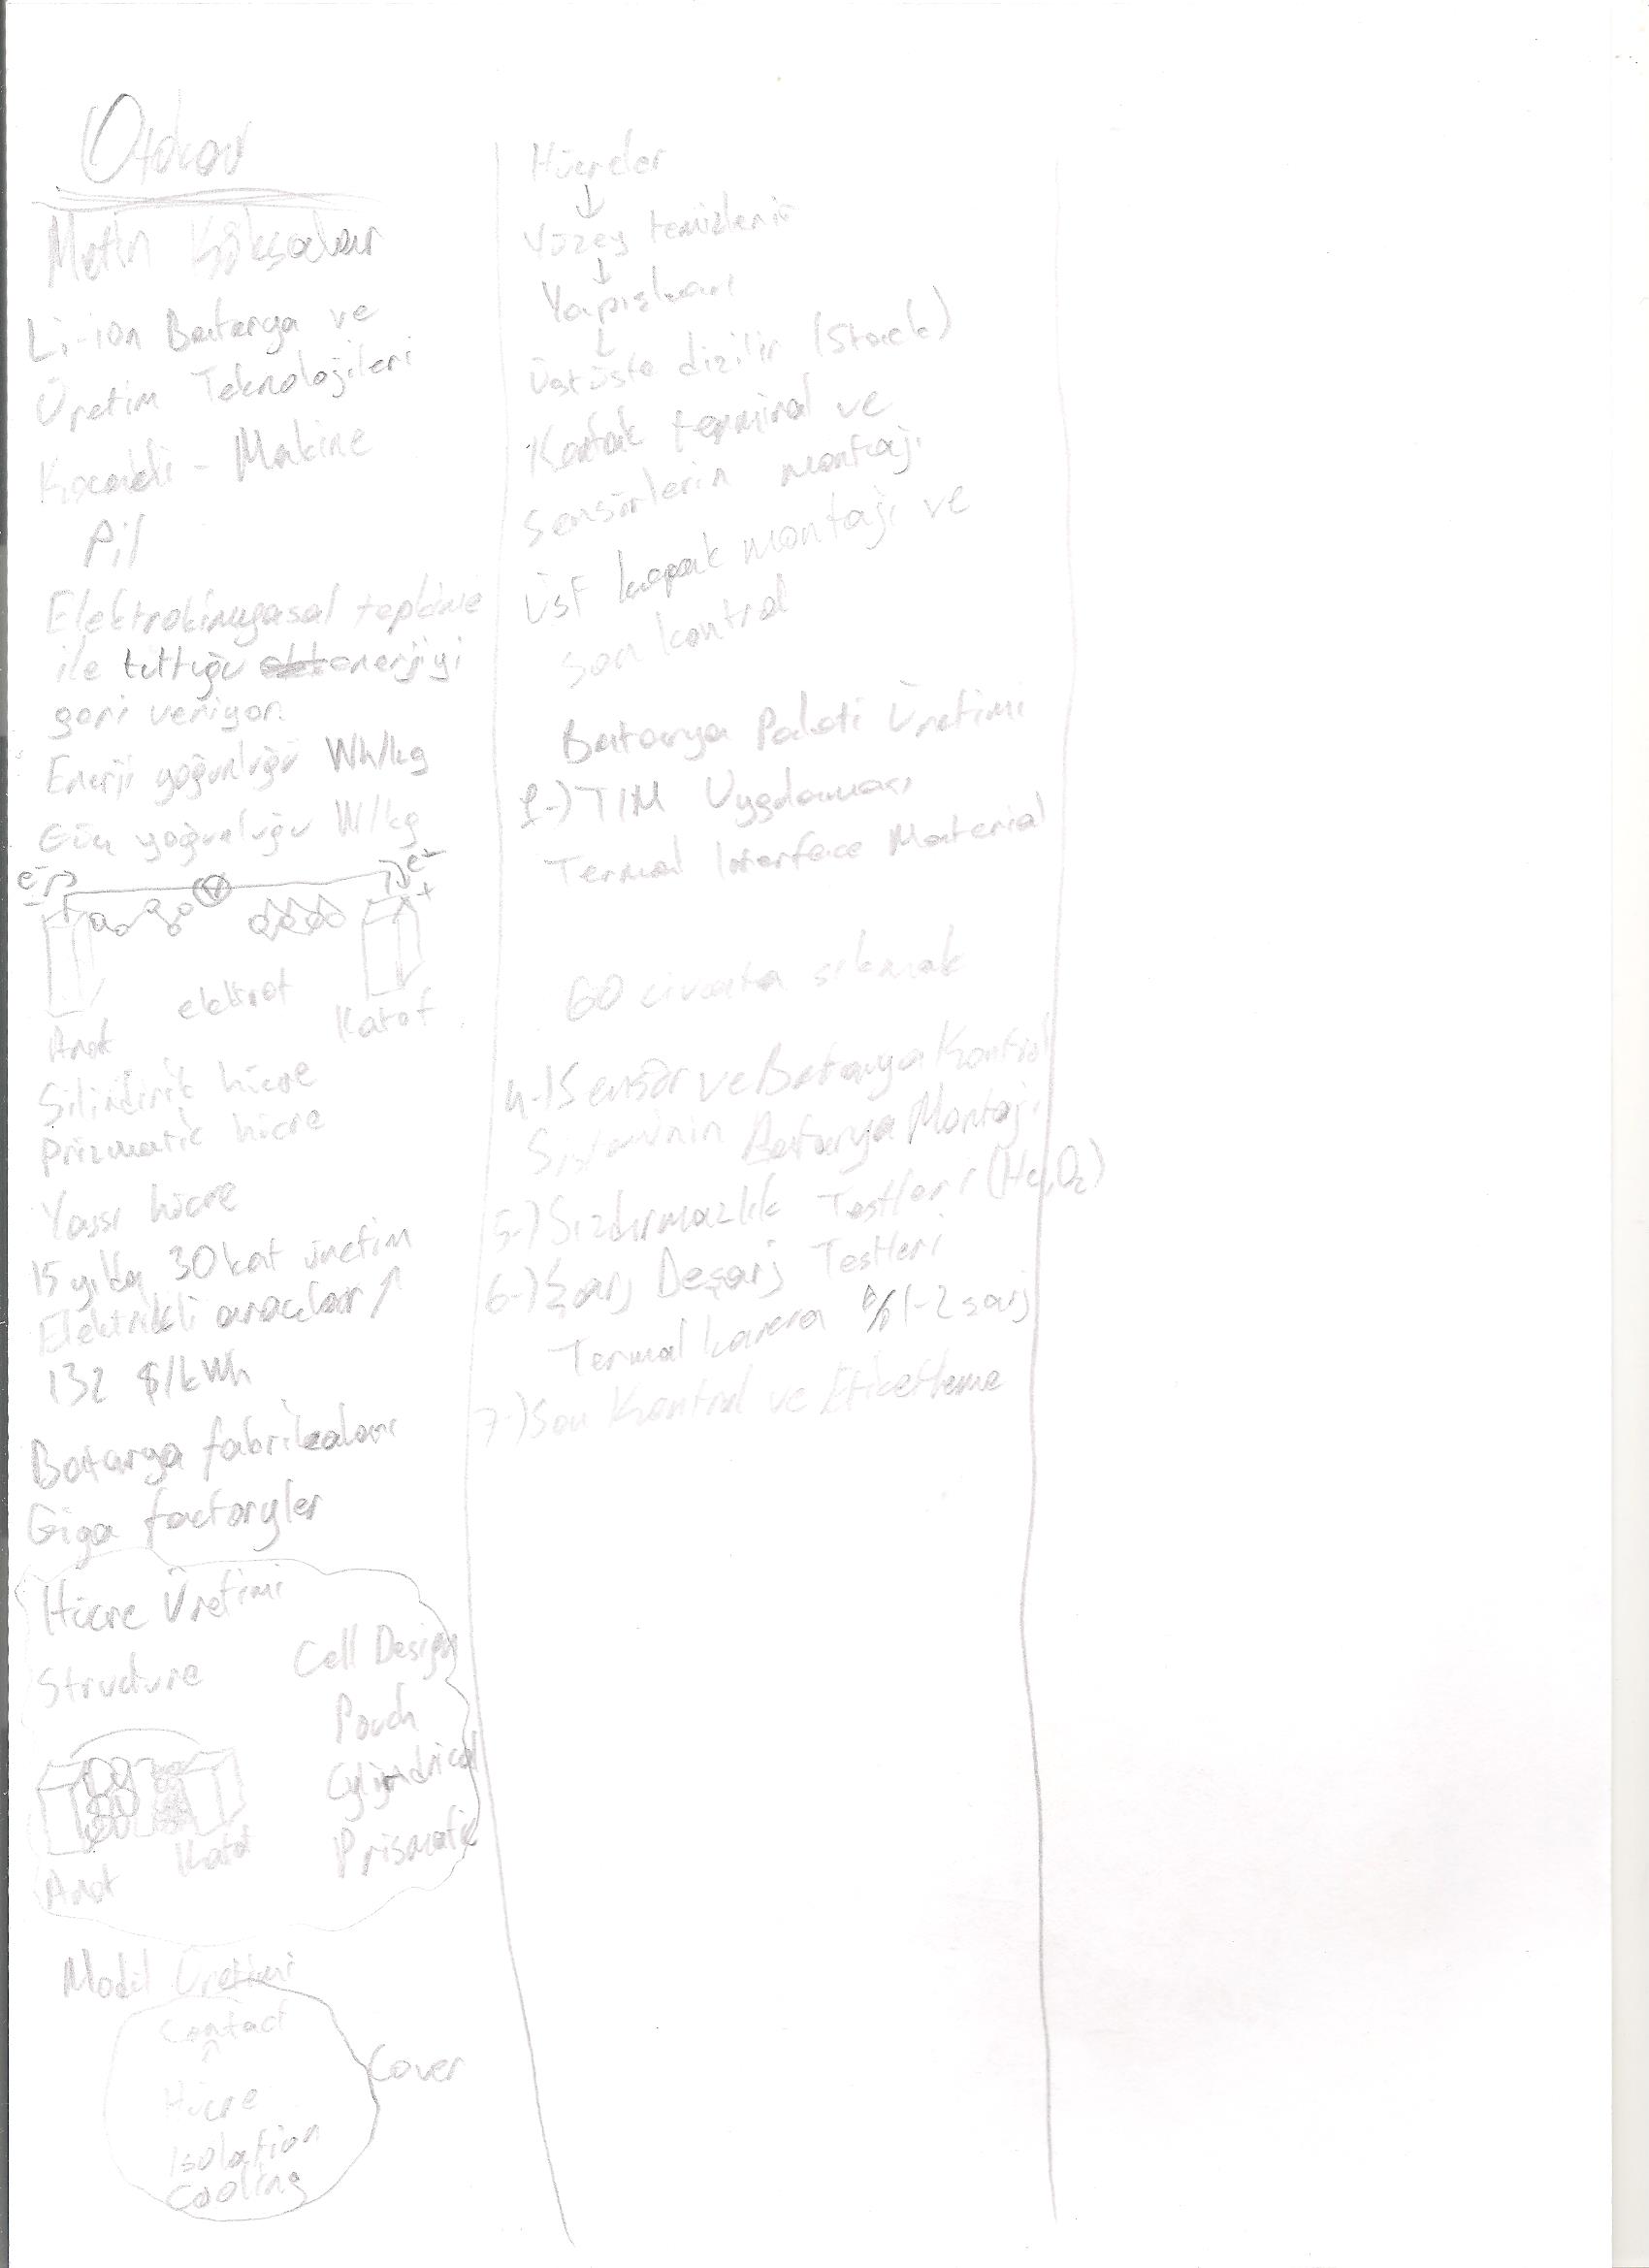 Otokar
Metin Köksalar
Li-ion Batarya ve
Üretim Teknolojileri
Kocaeli - Makine
Pil
Elektrokimyasal tepkime
ile tuttuğu enerjiyi
geri veriyor.
Enerji yoğunluğu Wh/kg
Güç yoğunluğu W/kg
e- V e-
- +
elektrot
Anot Katot
Silindirik hücre
Prizmatik hücre
Yassı hücre
15 yılda 30 kat üretim
Elektrikli araçlar ↑
132 $/kWh
Batarya fabrikaları
Giga factoryler
Hücre Üretimi
Structure
Cell Design
Pouch
Cylindrical
Prismatic
Anot Katot
Modül Üretimi
Contact
Hücre
Isolation
Cooling
Cover
Hücreler
↓
Yüzey temizlenir
↓
Yapıştırıcı
↓
Üst üste dizilir (Stack)
Kontak terminal ve
Sensörlerin montajı
Üst kapak montajı ve
son kontrol
Batarya Paketi Üretimi
1-) TIM Uygulaması
Termal Interface Material
60 civata sıkmak
4-) Sensör ve Batarya Kontrol
Sistemi'nin Batarya Montajı
5-) Sızdırmazlık Testleri (He, O2)
6-) Şarj Deşarj Testleri
Termal kamera %1-2 şarj
7-) Son Kontrol ve Etiketleme